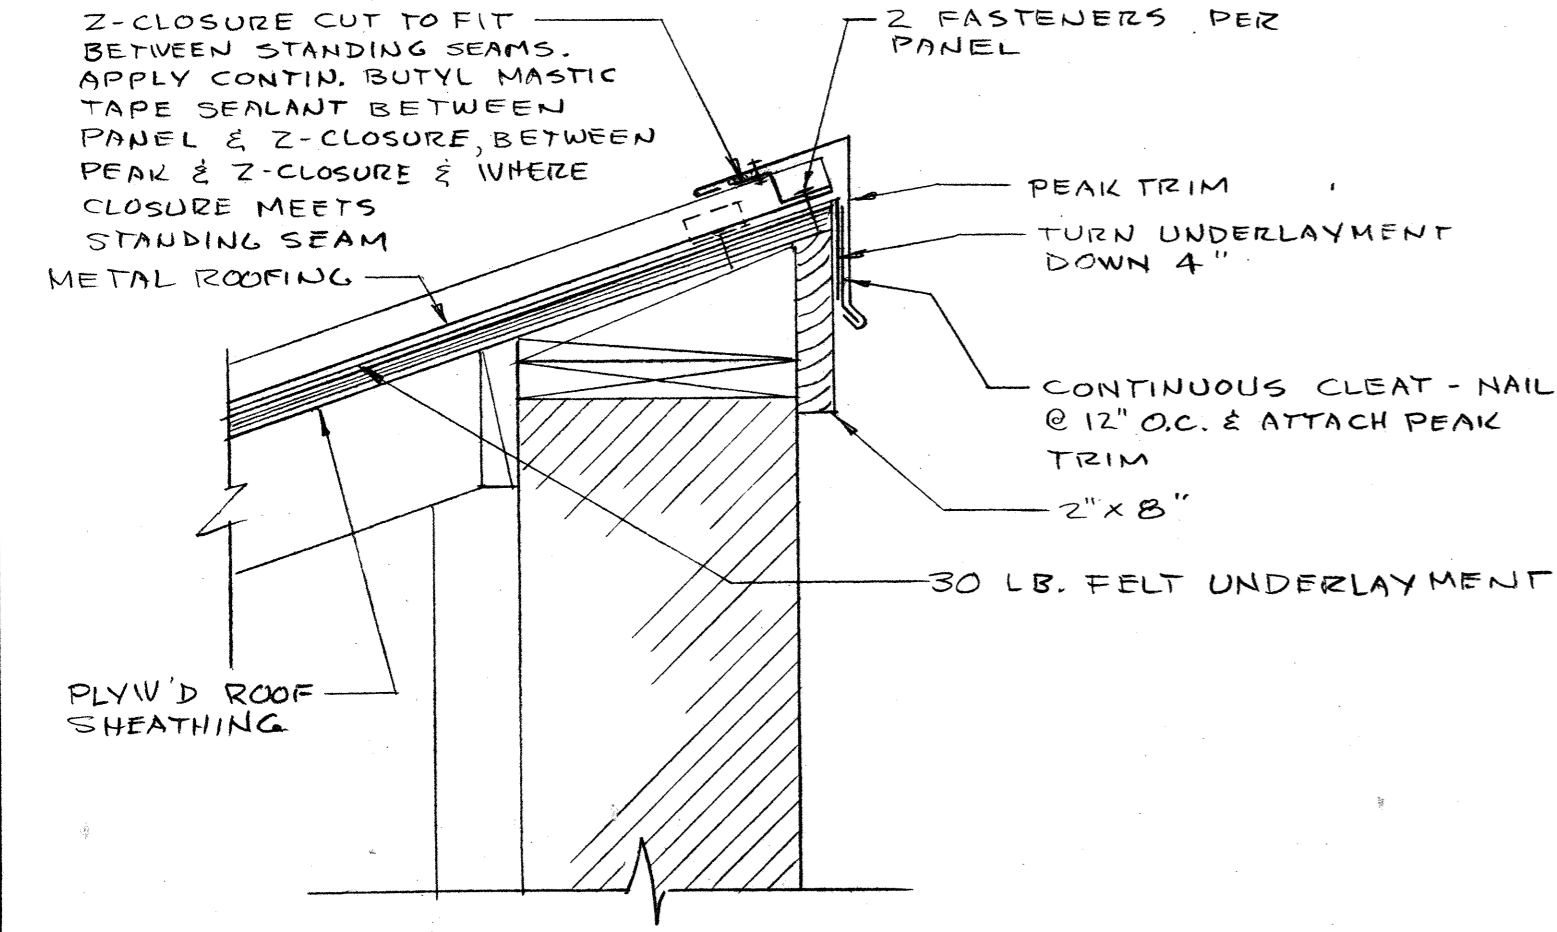 Z-CLOSURE CUT TO FIT
BETWEEN STANDING SEAMS.
APPLY CONTIN. BUTYL MASTIC
TAPE SEALANT BETWEEN
PANEL & Z-CLOSURE, BETWEEN
PEAK & Z-CLOSURE & WHERE
CLOSURE MEETS
STANDING SEAM
METAL ROOFING
PLYW'D ROOF
SHEATHING
2 FASTENERS PER
PANEL
PEAK TRIM
TURN UNDERLAYMENT
DOWN 4"
CONTINUOUS CLEAT - NAIL
@ 12" O.C. & ATTACH PEAK
TRIM
2" X 8"
30 LB. FELT UNDERLAYMENT